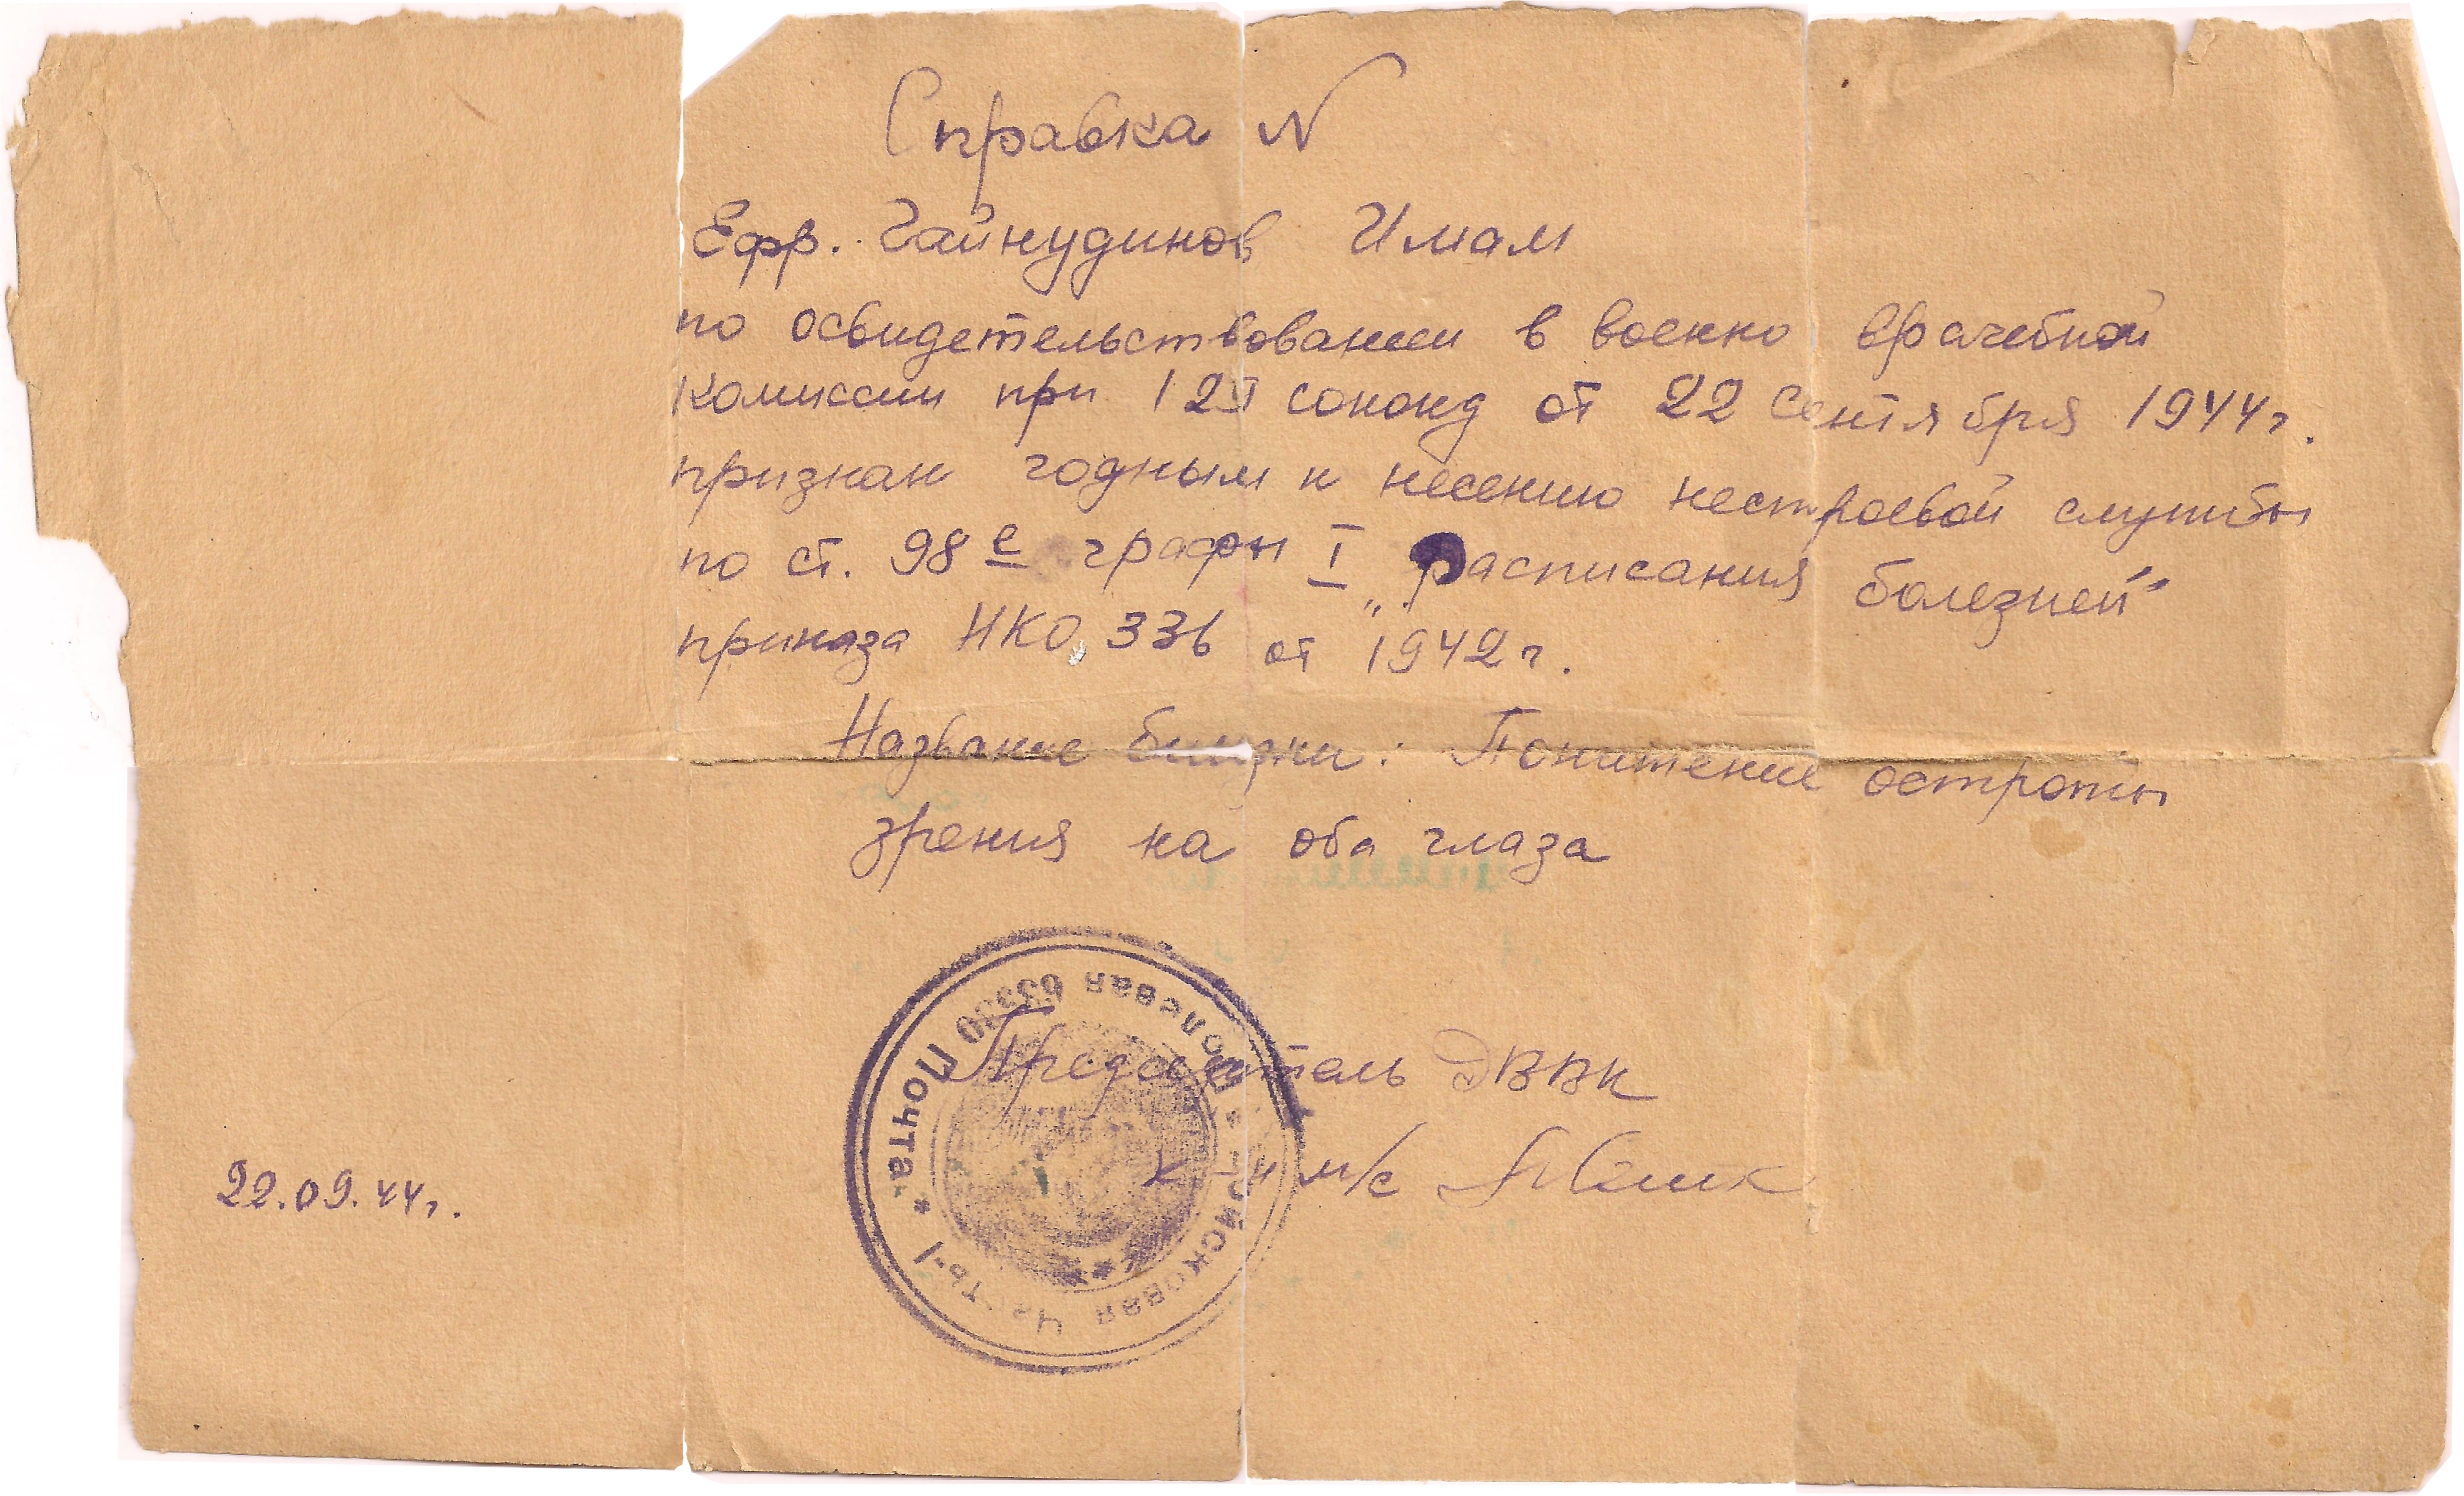 Справка N
Ефр. Гайнудинов Имам
по освидетельствовании в военно врачебной
комиссии при 121 от 22 сентября 1944г.
признан годным к несению нестроевой службы
по ст. 98 е графы I „Расписания болезней“
приказа НКО 336 от 1942г.
Название болезни: Понижение остроты
зрения на оба глаза
Полевая Почта
63330
Войсковая Часть
Председатель ДВВК
м/с
22.09.44г.